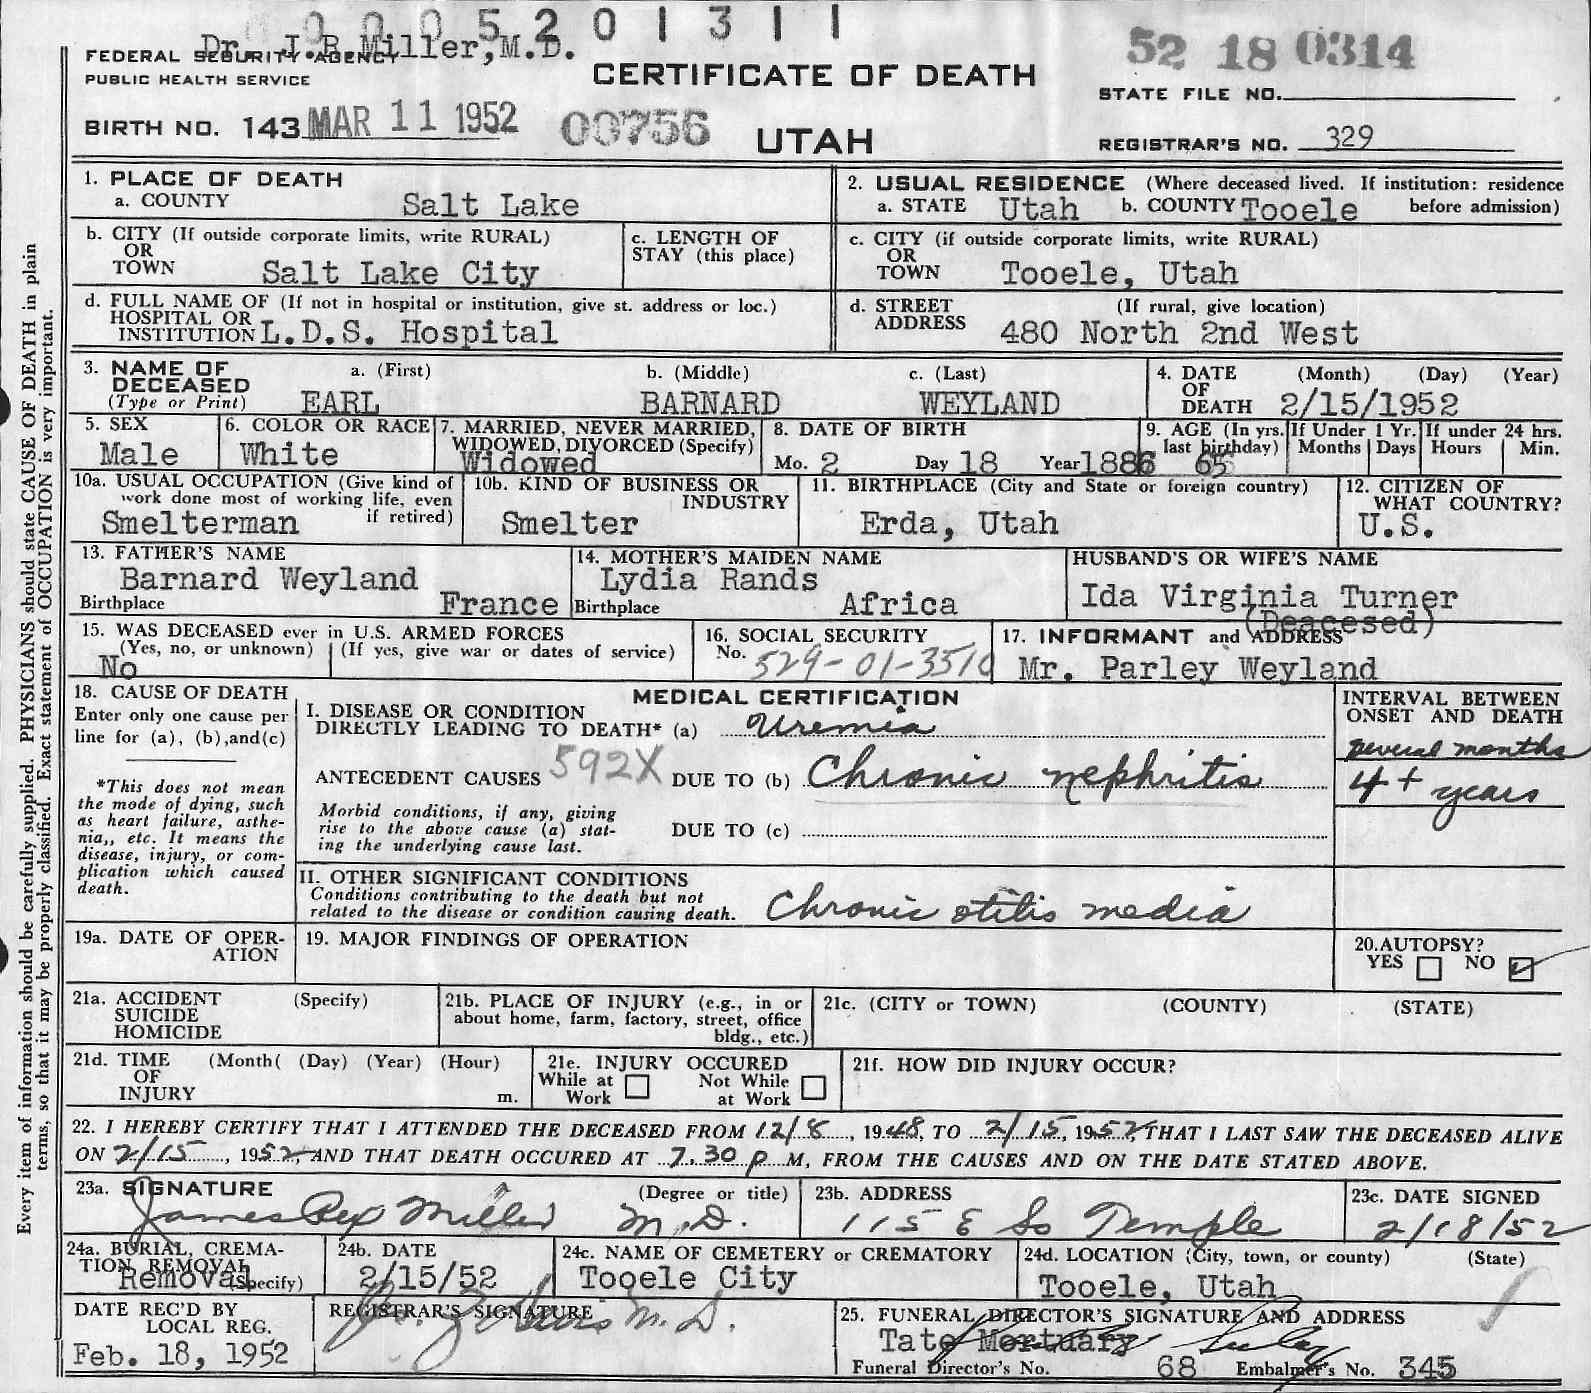 0005201311
Dr. J.R.Miller,M.D.
FEDERAL SECURITY AGENCY
PUBLIC HEALTH SERVICE
CERTIFICATE OF DEATH
52 18 0314
STATE FILE NO.
BIRTH NO. 143 MAR 11 1952
00756
UTAH
REGISTRAR'S NO. 329
1. PLACE OF DEATH
a. COUNTY Salt Lake
2. USUAL RESIDENCE (Where deceased lived. If institution: residence before admission)
a. STATE Utah b. COUNTY Tooele
b. CITY (If outside corporate limits, write RURAL)
OR
TOWN Salt Lake City
c. LENGTH OF
STAY (this place)
c. CITY (if outside corporate limits, write RURAL)
OR
TOWN Tooele, Utah
d. FULL NAME OF (If not in hospital or institution, give st. address or loc.)
HOSPITAL OR
INSTITUTION L.D.S. Hospital
d. STREET (If rural, give location)
ADDRESS 480 North 2nd West
3. NAME OF
DECEASED
(Type or Print)
a. (First) b. (Middle) c. (Last)
EARL BARNARD WEYLAND
4. DATE (Month) (Day) (Year)
OF
DEATH 2/15/1952
5. SEX
Male
6. COLOR OR RACE
White
7. MARRIED, NEVER MARRIED,
WIDOWED, DIVORCED (Specify)
Widowed
8. DATE OF BIRTH
Mo. 2 Day 18 Year 1886
9. AGE (In yrs. last birthday)
65
If Under 1 Yr.
Months Days
If under 24 hrs.
Hours Min.
10a. USUAL OCCUPATION (Give kind of
work done most of working life, even
if retired)
Smelterman
10b. KIND OF BUSINESS OR
INDUSTRY
Smelter
11. BIRTHPLACE (City and State or foreign country)
Erda, Utah
12. CITIZEN OF
WHAT COUNTRY?
U.S.
13. FATHER'S NAME
Barnard Weyland
Birthplace France
14. MOTHER'S MAIDEN NAME
Lydia Rands
Birthplace Africa
HUSBAND'S OR WIFE'S NAME
Ida Virginia Turner
(Deacesed)
15. WAS DECEASED ever in U.S. ARMED FORCES
(Yes, no, or unknown) (If yes, give war or dates of service)
No
16. SOCIAL SECURITY
No. 529-01-3510
17. INFORMANT and ADDRESS
Mr. Parley Weyland
18. CAUSE OF DEATH
Enter only one cause per
line for (a), (b),and(c)
*This does not mean
the mode of dying, such
as heart failure, asthe-
nia,, etc. It means the
disease, injury, or com-
plication which caused
death.
MEDICAL CERTIFICATION
I. DISEASE OR CONDITION
DIRECTLY LEADING TO DEATH* (a) Uremia
ANTECEDENT CAUSES 592X DUE TO (b) Chronic nephritis
Morbid conditions, if any, giving
rise to the above cause (a) stat-
ing the underlying cause last.
DUE TO (c)
INTERVAL BETWEEN
ONSET AND DEATH
several months
4+ years
II. OTHER SIGNIFICANT CONDITIONS
Conditions contributing to the death but not
related to the disease or condition causing death.
Chronic otitis media
19a. DATE OF OPER-
ATION
19. MAJOR FINDINGS OF OPERATION
20.AUTOPSY?
YES NO
21a. ACCIDENT (Specify)
SUICIDE
HOMICIDE
21b. PLACE OF INJURY (e.g., in or
about home, farm, factory, street, office
bldg., etc.)
21c. (CITY or TOWN) (COUNTY) (STATE)
21d. TIME (Month( (Day) (Year) (Hour)
OF
INJURY m.
21e. INJURY OCCURED
While at Not While
Work at Work
21f. HOW DID INJURY OCCUR?
22. I HEREBY CERTIFY THAT I ATTENDED THE DECEASED FROM 12/8, 1948, TO 2/15, 1952, THAT I LAST SAW THE DECEASED ALIVE
ON 2/15, 1952, AND THAT DEATH OCCURED AT 7.30 P M, FROM THE CAUSES AND ON THE DATE STATED ABOVE.
23a. SIGNATURE (Degree or title)
James Rex Miller M.D.
23b. ADDRESS
115 E So Temple
23c. DATE SIGNED
2/18/52
24a. BURIAL, CREMA-
TION, REMOVAL
(Specify)
Removal
24b. DATE
2/15/52
24c. NAME OF CEMETERY or CREMATORY
Tooele City
24d. LOCATION (City, town, or county) (State)
Tooele, Utah
DATE REC'D BY
LOCAL REG.
Feb. 18, 1952
REGISTRAR'S SIGNATURE
M.D.
25. FUNERAL DIRECTOR'S SIGNATURE AND ADDRESS
Tate Mortuary
Funeral Director's No. 68 Embalmer's No. 345
Every item of information should be carefully supplied. PHYSICIANS should state CAUSE OF DEATH in plain
terms, so that it may be properly classified. Exact statement of OCCUPATION is very important.